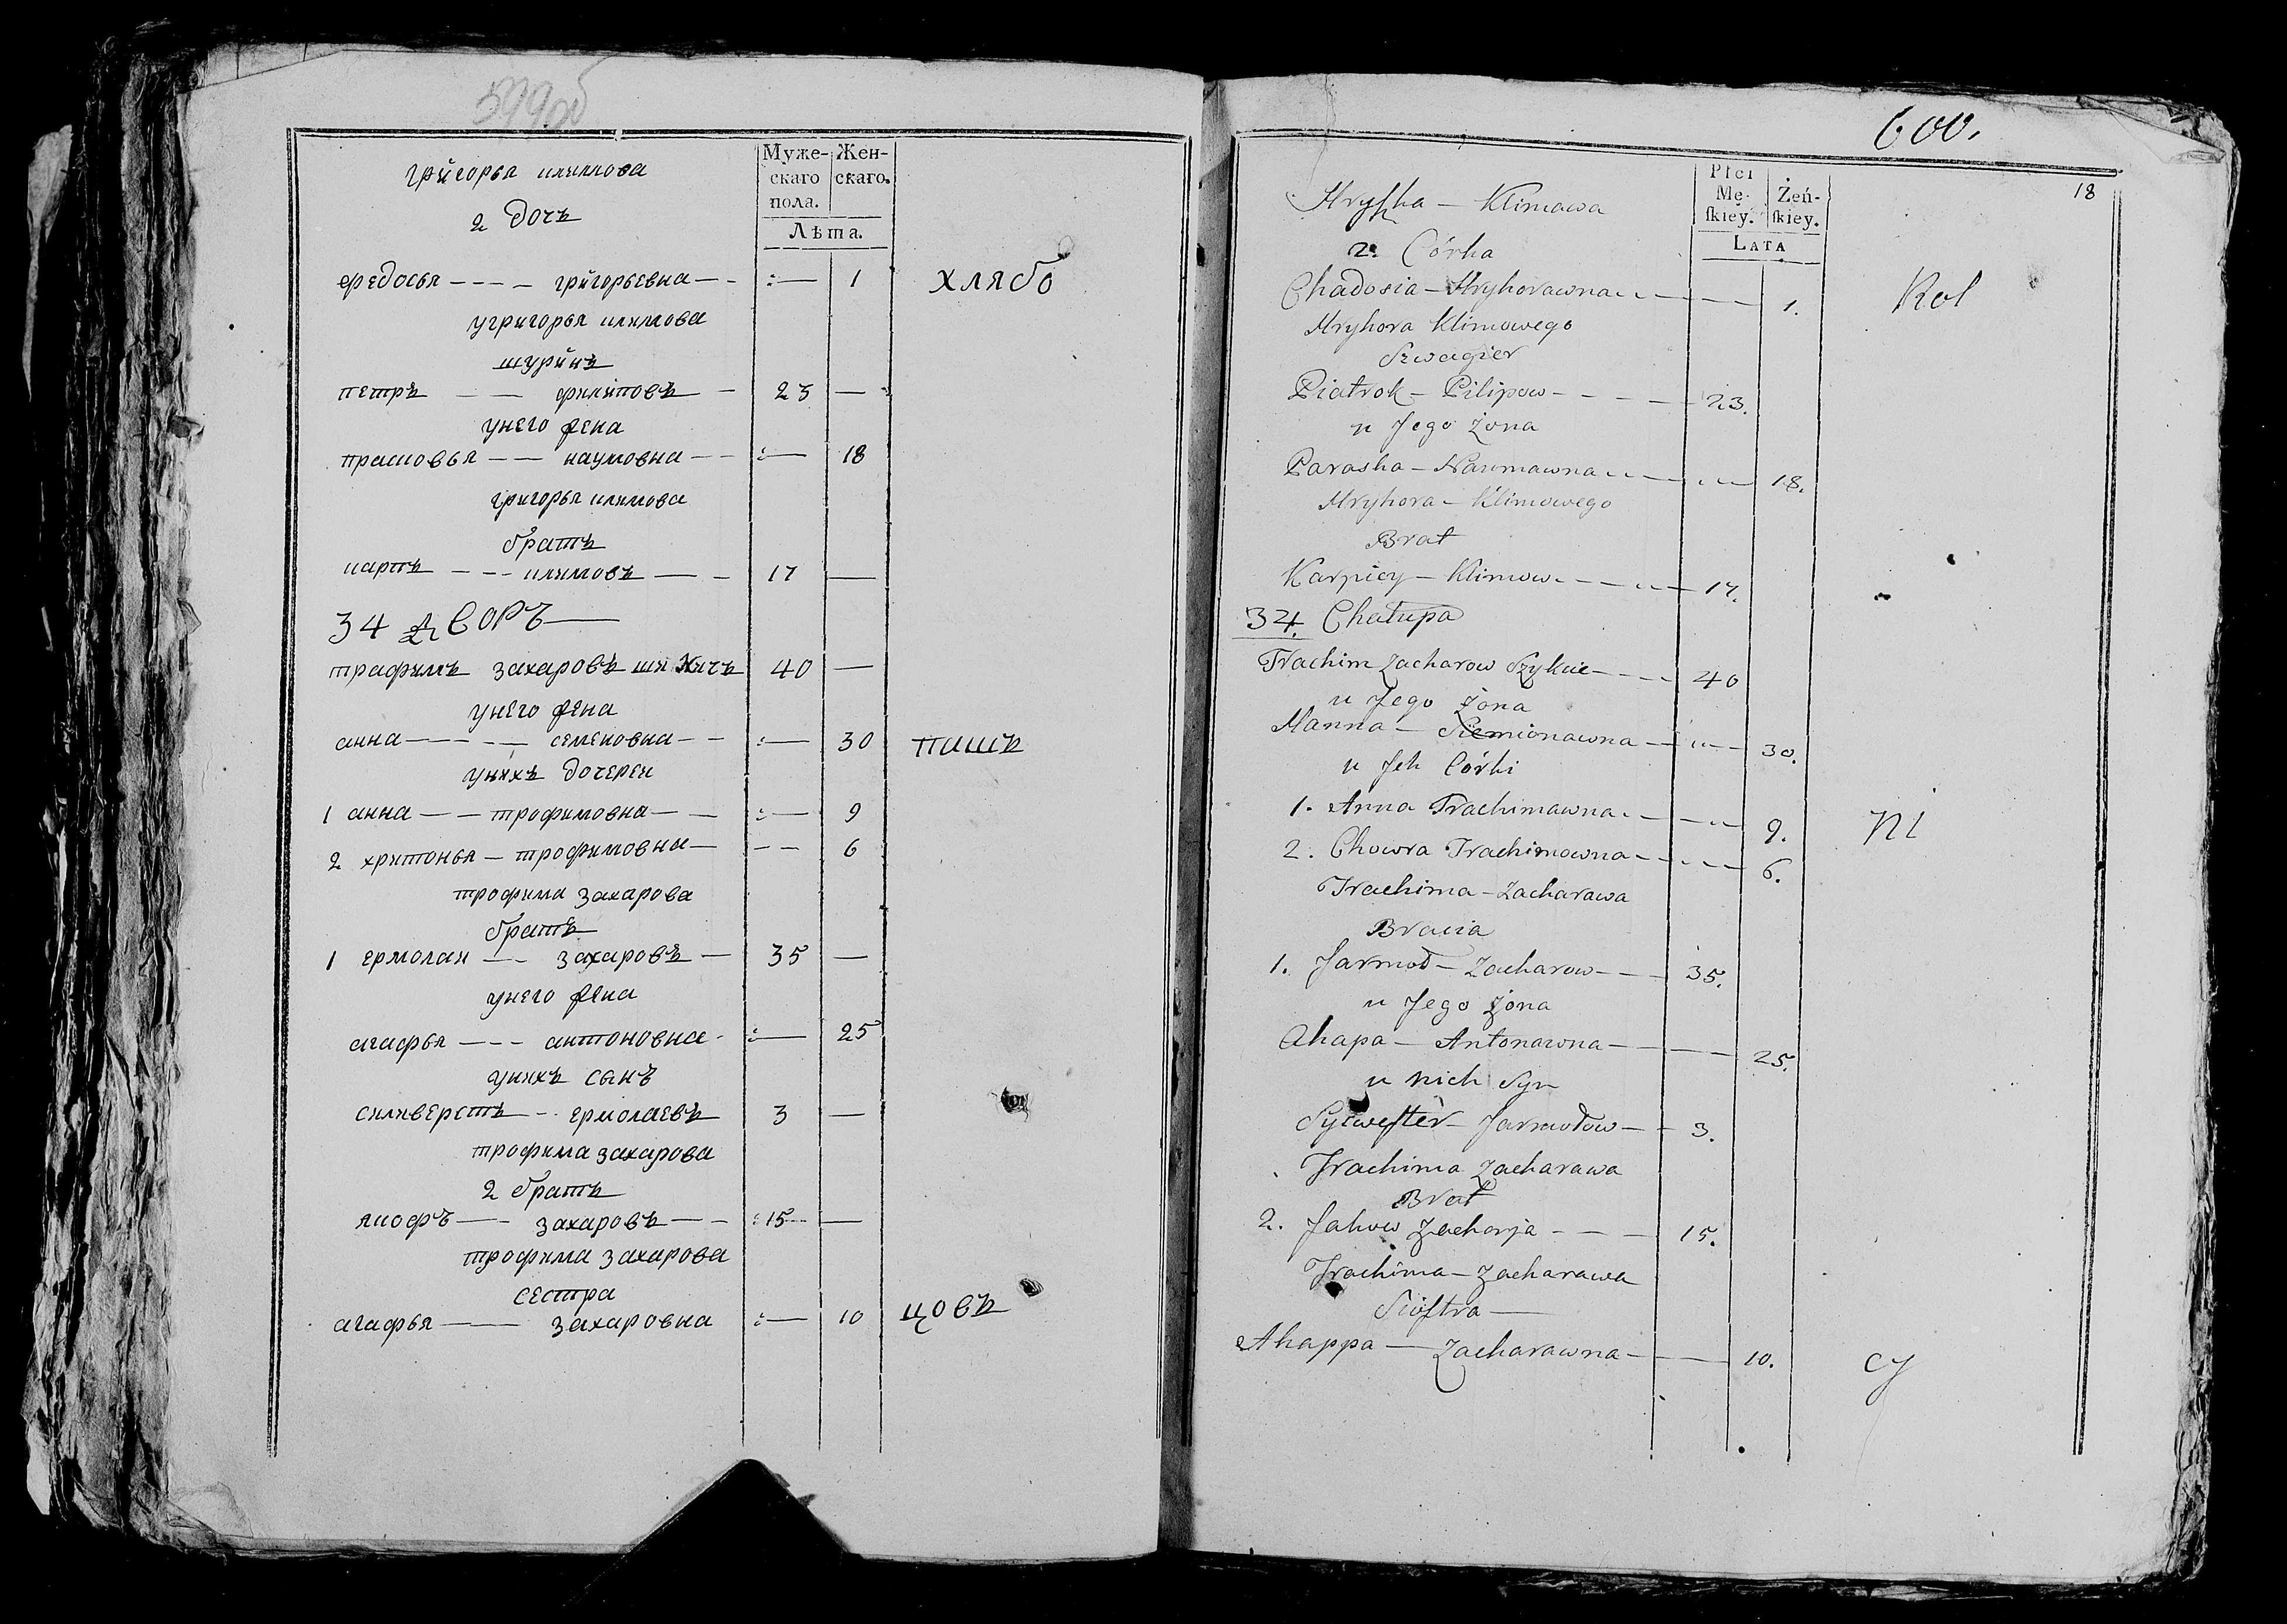 599об
григорья климова
2 дочь
Муже-
скаго
пола.
Жен-
скаго.
Лѣта.
федосья - - - - григорьевна - - :— 1 хлябо
у григорья климова
шуринъ
петръ — — филиповъ — 23 —
у него жена
прасковья — — наумовна — — :— 18
григорья климова
братъ
карпъ — - - климовъ — - 17 —
34 дворъ —
трафимъ захаровъ шикичъ 40 —
у него жена
анна — - - — семеновна - - :— 30 пашъ
у нихъ дочереи
1 анна — — трофимовна — — :— 9
2 хритонья — трофимовна — - - 6
трофима захарова
братъ
1 ермолаи — - захаровъ — 35 —
у него жена
агафья — - - антоновна - :— 25
у нихъ сынъ
силиверстъ - - ермолаевъ 3 —
трофима захарова
2 братъ
якофъ — - захаровъ — - 15 —
трофима захарова
сестра
агафья — — захаровна :— 10 цовъ
600.
18
Hryſzka — Klimawa
2. Córka
Płci
Mę-
ſkiey.
Żeń-
ſkiey.
Lata
Chadosia — Hryhorawna - - — 1. Rol
Hryhora Klimowego
Szwagier
Piatrok — Pilipow - - - — 23.
u Jego Żona
Paraska — Naumawna - - — 18.
Hryhora — Klimowego
Brat
Karpiey — Klimow - - - — 17.
34. Chałupa
Trachim Zacharow Szykuc - - - 40
u Jego Żona
Hanna — Siemionawna — - - 30.
u Jch Córki
1. Anna Trachimawna - - — 9. ni
2. Chowra Trachimawna - - — 6.
Trachima — Zacharawa
Bracia
1. Jarmoł — Zacharow - — 35.
u Jego Żona
Ahapa — Antonawna — — 25.
u nich Syn
Sylweſter — Jarmołow — - 3.
Trachima Zacharawa
Brat
2. Jakow Zacharja - — - 15.
Trachima — Zacharawa
Sioſtra —
Ahappa — Zacharawna — — 10. cy